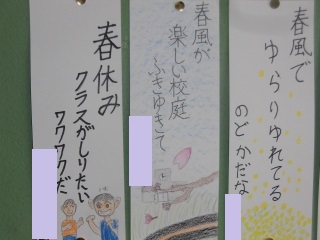 春風で
ゆらりゆれてる
のどかだな
春風が
楽しい校庭
ふきゆきて
春休み
クラスがしりたい
ワクワクだ